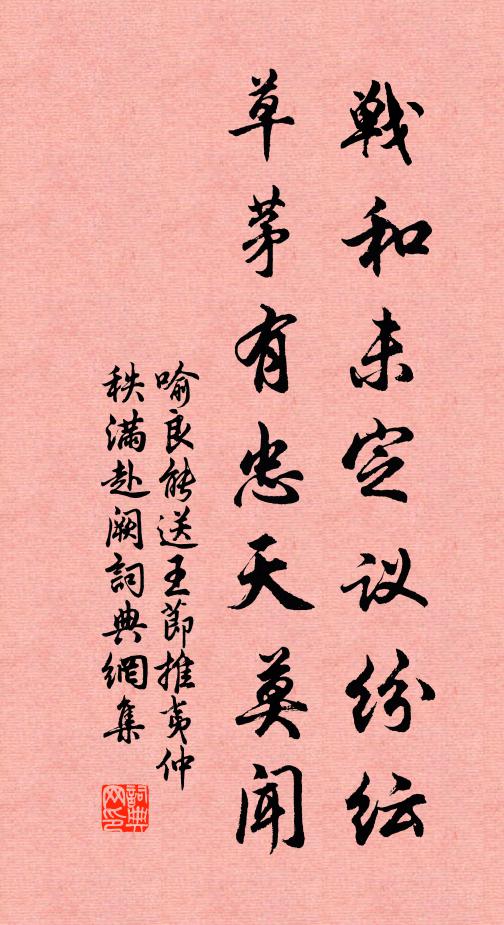 戰和未定议纷纭
草茅有忠天莫聞
喻良能送王節推夷仲
秩滿赴阙詞典網集
詞典网印